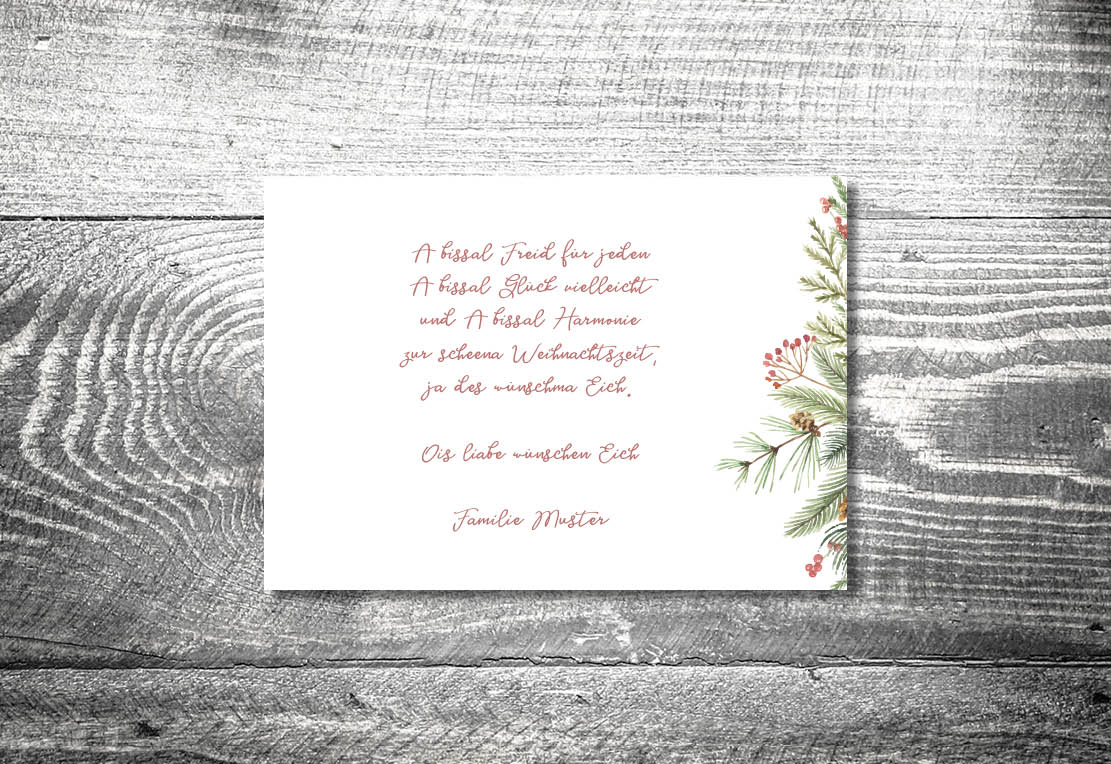 A bissal Freid für jeden
A bissal Glück vielleicht
und A bissal Harmonie
zur scheena Weihnachtszeit,
ja des wünschma Eich.
Ois liabe wünschen Eich
Familie Muster